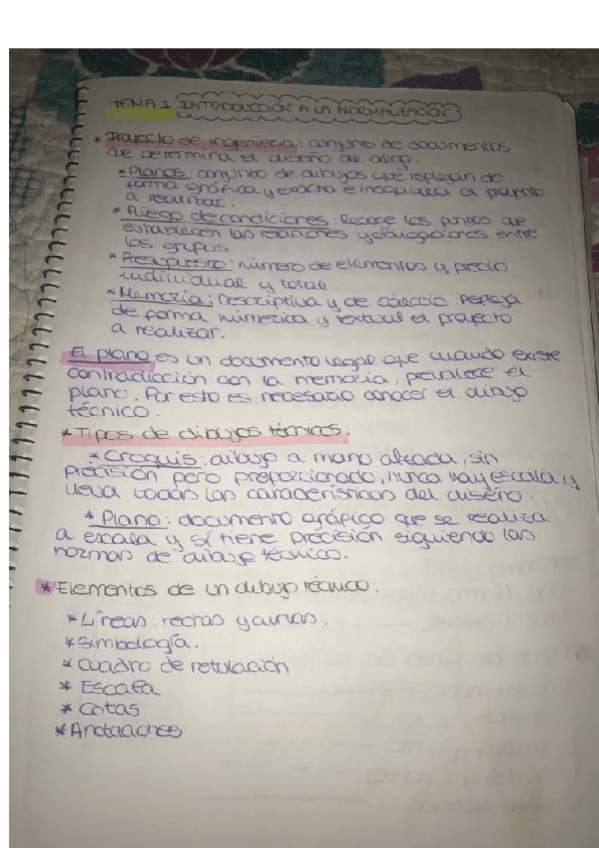 TEMA 1 INTRODUCCIÓN A LA NORMALIZACIÓN
* Proyecto de ingeniería: conjunto de documentos
que determina el diseño de algo.
* Planos: conjunto de dibujos que reflejan de
forma gráfica, y exacta e inequívoca el proyecto
a realizar.
* Pliego de condiciones: Recoge los puntos que
establecen las relaciones y obligaciones entre
los grupos
* Presupuesto: número de elementos y precio
individual y total.
* Memoria: Descriptiva y de cálculo Refleja
de forma númerica y textual el proyecto
a realizar.
El plano es un documento legal que cuando existe
contradicción con la memoria, prevalece el
plano. Por esto es necesario conocer el dibujo
técnico.
* Tipos de dibujos técnicos:
* Croquis: dibujo a mano alzada, sin
precisión pero proporcionado, nunca hay escala y
lleva todas las características del diseño.
* Plano: documento gráfico que se realiza
a escala y sí tiene precisión siguiendo las
normas de dibujo técnico.
* Elementos de un dibujo técnico:
* Líneas: rectas y curvas.
* Simbología.
* Cuadro de rotulación
* Escala
* Cotas
* Anotaciones